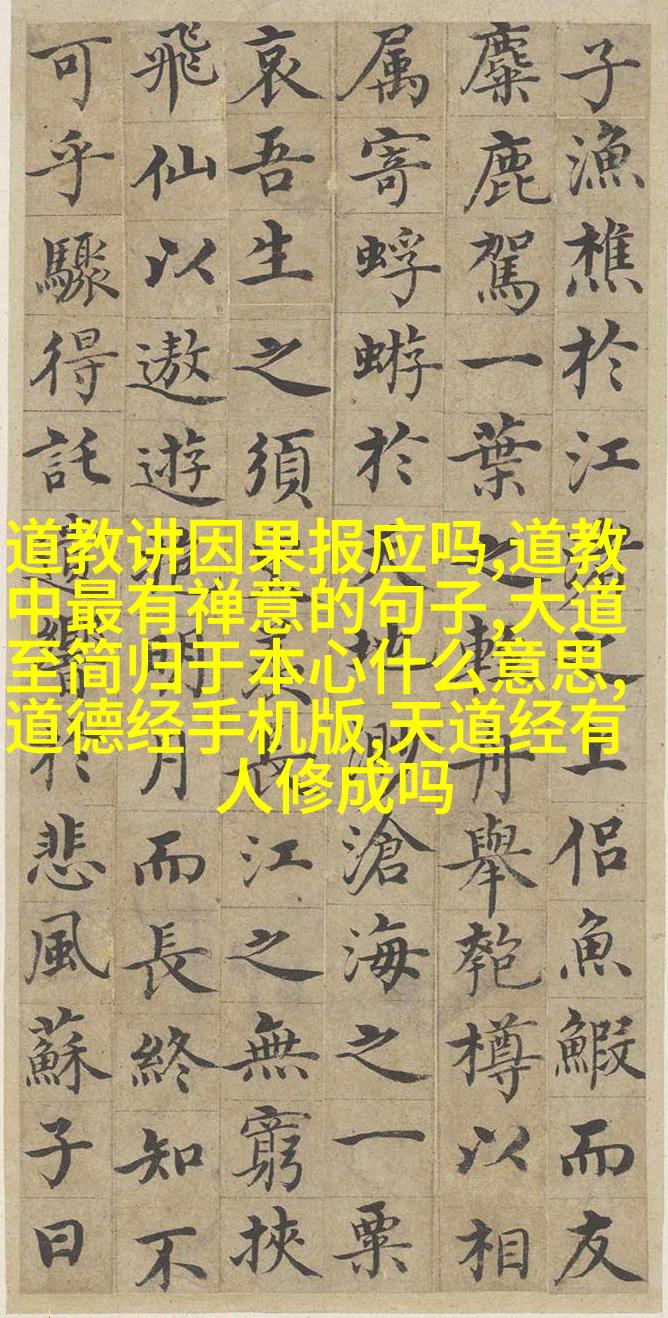 道教讲因果报应吗,道教
中最有禅意的句子,大道
至简归于本心什么意思,
道德经手机版,天道经有
人修成吗
子漁樵於江渚之上侶魚鰕而友
麋鹿駕一葉之輕舟舉匏樽以相
属寄蜉蝣於天地滄海之一粟
哀吾生之須長江之無窮挾
飛仙以遨遊明月而長終知不
可乎驟得託遺響於悲風蘇子曰